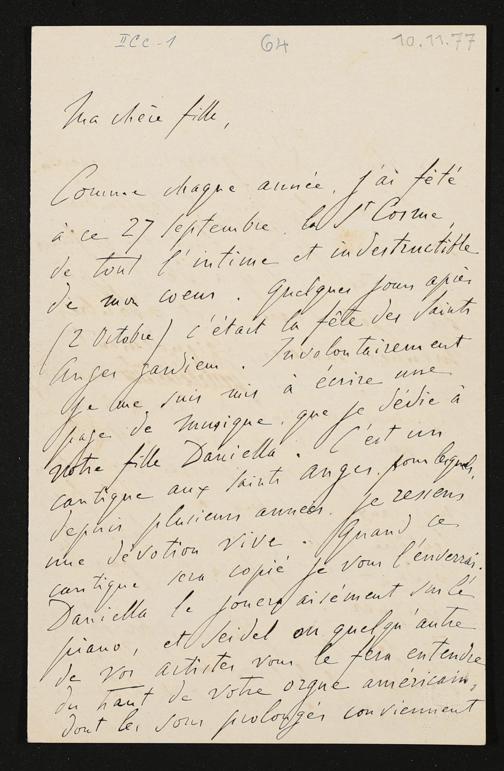 IICc-1 64 10.11.77
Ma chère fille,
Comme chaque année, j'ai fêté
à ce 27 septembre, la St Cosme,
de tout l'intime et indestructible
de mon coeur. Quelques jours après
(2 Octobre) c'était la fête des Saints
Anges gardiens. Involontairement
je me suis mis à écrire une
page de musique, que je dédie à
votre fille Daniella. C'est un
cantique aux saints anges, pour lesquels,
depuis plusieurs années, je ressens
une dévotion vive. Quand ce
cantique sera copié je vous l'enverrai.
Daniella le jouera aisément sur le
piano, et Seidel ou quelqu'autre
de vos artistes vous le fera entendre
du haut de votre orgue américain,
dont les sons prolongés conviennent